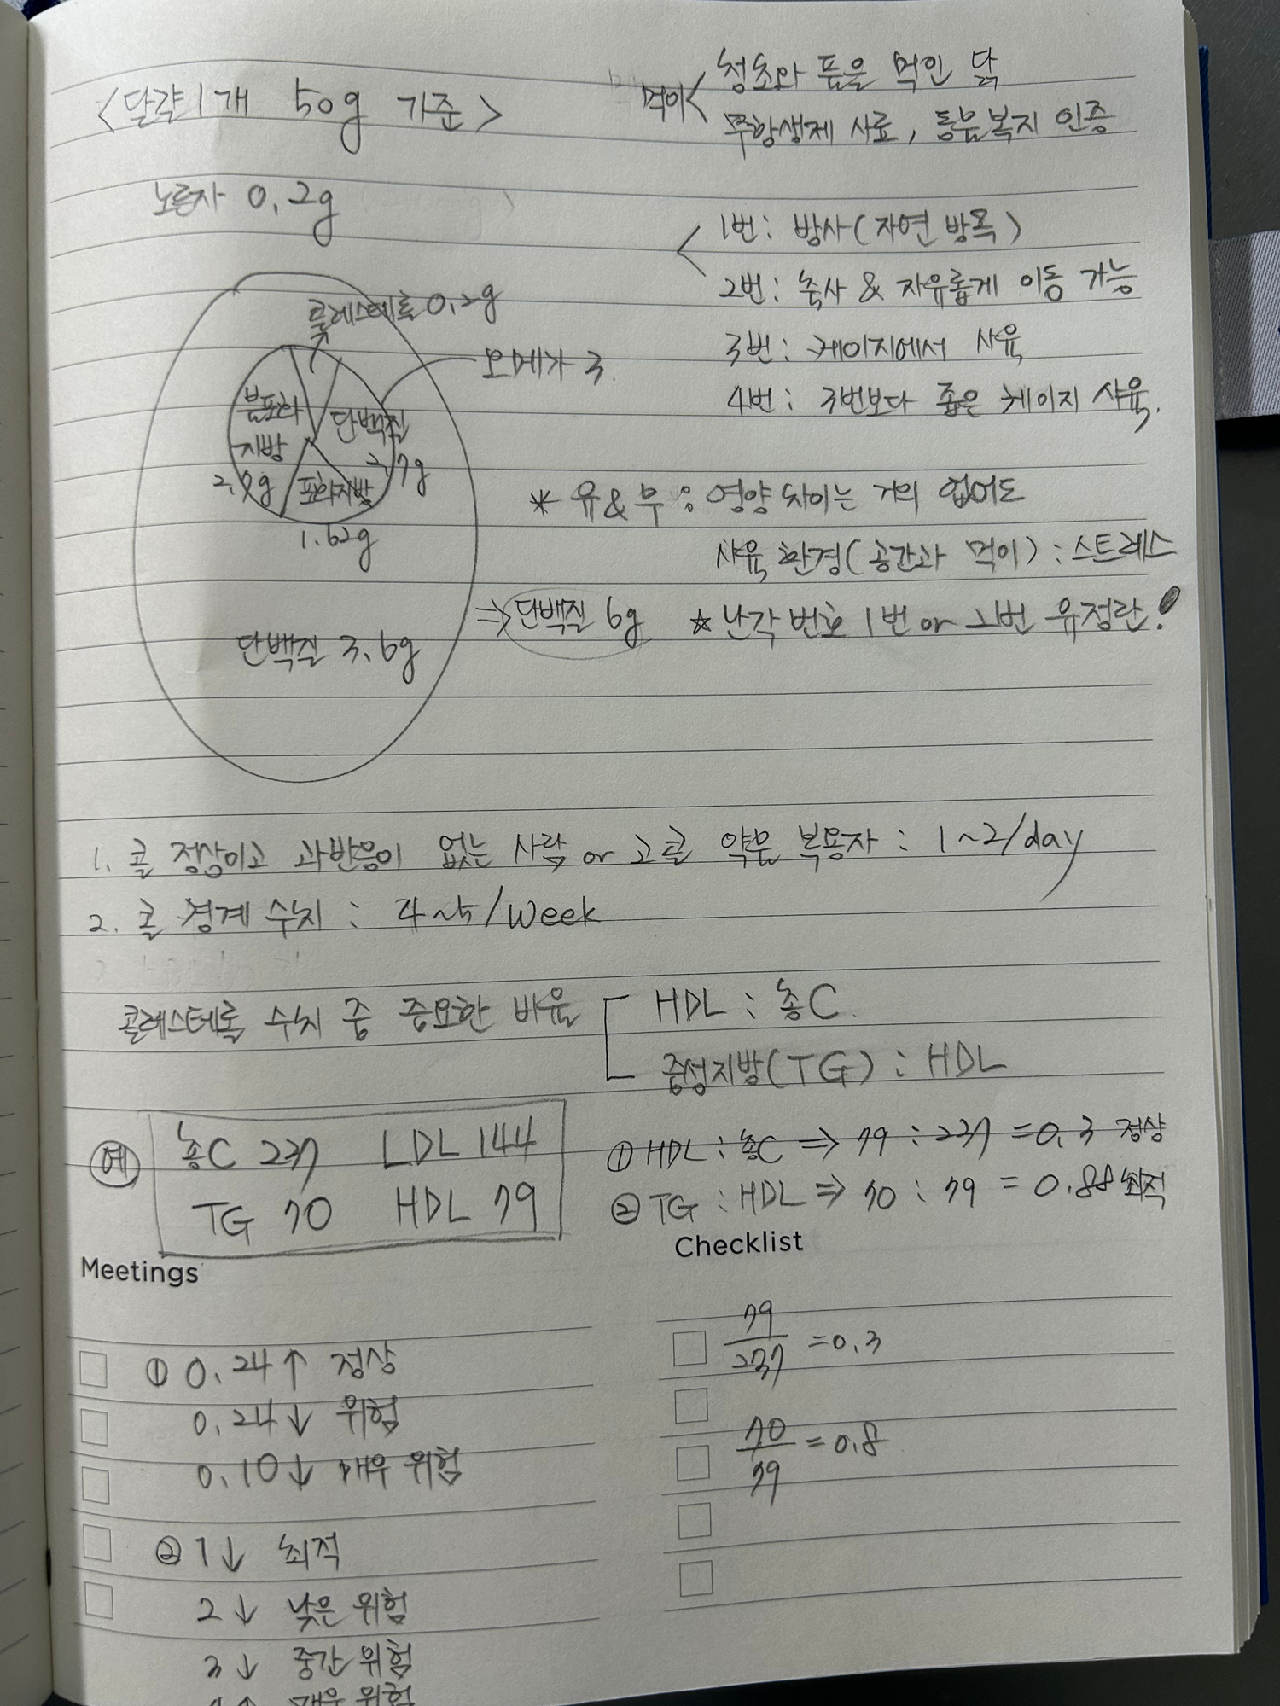 <달걀 1개 50g 기준>
먹이< 청초와 풀을 먹인 닭
무항생제 사료, 동물복지 인증
노른자 0.2g
1번: 방사(자연 방목)
2번: 축사 & 자유롭게 이동 가능
3번: 케이지에서 사육
4번: 3번보다 좁은 케이지 사육.
콜레스테롤 0.2g
오메가 3
불포화
지방
단백질
2.7g
포화지방
1.62g
* 유&무: 영양 차이는 거의 없어도
사육 환경(공간과 먹이): 스트레스
⇒ 단백질 6g
☆ 난각 번호 1번 or 2번 유정란!
단백질 3.6g
1. 콜 정상이고 과반응이 없는 사람 or 고콜 약물 복용자: 1~2/day
2. 콜 경계 수치: 4~5/week
콜레스테롤 수치 중 중요한 비율
HDL : 총C
중성지방(TG) : HDL
예
총C 237 LDL 144
TG 70 HDL 79
① HDL : 총C ⇒ 79 : 237 = 0.3 정상
② TG : HDL ⇒ 70 : 79 = 0.88 최적
Meetings
Checklist
① 0.24↑ 정상
0.24↓ 위험
0.10↓ 매우 위험
79/237 = 0.3
70/79 = 0.8
② 1↓ 최적
2↓ 낮은 위험
3↓ 중간 위험
4↑ 매우 위험